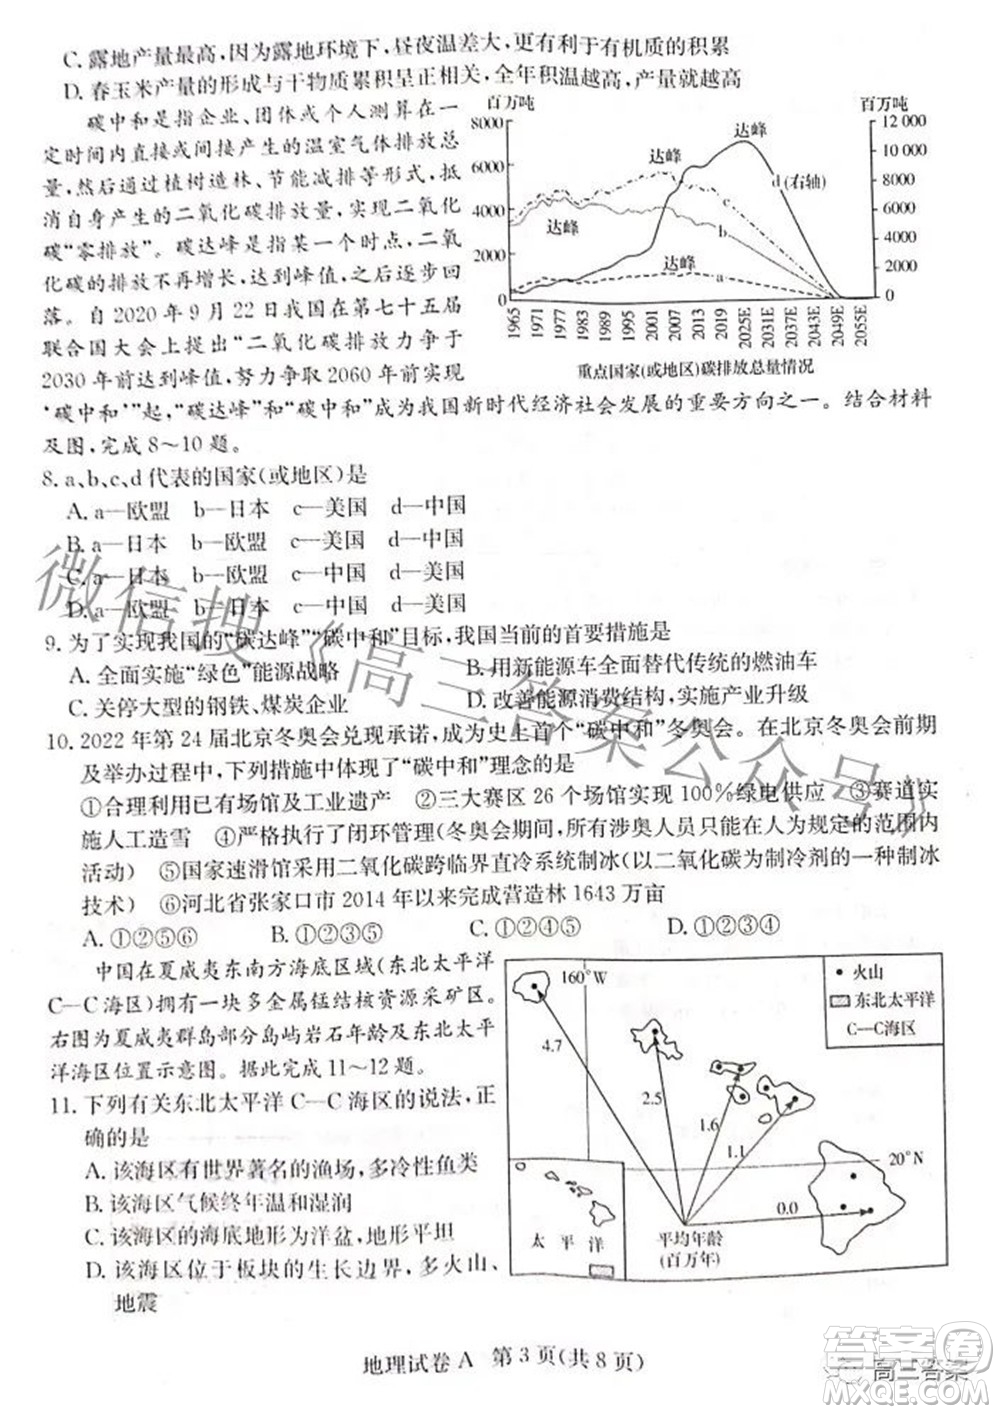 C. 露地产量最高,因为露地环境下,昼夜温差大,更有利于有机质的积累
D. 春玉米产量的形成与干物质累积呈正相关,全年积温越高,产量就越高
碳中和是指企业、团体或个人测算在一
定时间内直接或间接产生的温室气体排放总
量,然后通过植树造林、节能减排等形式,抵
消自身产生的二氧化碳排放量,实现二氧化
碳“零排放”。碳达峰是指某一个时点,二氧
化碳的排放不再增长,达到峰值,之后逐步回
落。自 2020 年 9 月 22 日我国在第七十五届
联合国大会上提出“二氧化碳排放力争于
2030 年前达到峰值,努力争取 2060 年前实现
‘碳中和’”起,“碳达峰”和“碳中和”成为我国新时代经济社会发展的重要方向之一。结合材料
及图,完成 8～10 题。
百万吨
8000
6000
4000
2000
0
百万吨
12 000
10 000
8000
6000
4000
2000
0
达峰
达峰
达峰
达峰
d(右轴)
c
b
a
1965
1971
1977
1983
1989
1995
2001
2007
2013
2019
2025E
2031E
2037E
2043E
2049E
2055E
重点国家(或地区)碳排放总量情况
8. a、b、c、d 代表的国家(或地区)是
A. a—欧盟 b—日本 c—美国 d—中国
B. a—日本 b—欧盟 c—美国 d—中国
C. a—日本 b—欧盟 c—中国 d—美国
D. a—欧盟 b—日本 c—中国 d—美国
9. 为了实现我国的“碳达峰”“碳中和”目标,我国当前的首要措施是
A. 全面实施“绿色”能源战略 B. 用新能源车全面替代传统的燃油车
C. 关停大型的钢铁、煤炭企业 D. 改善能源消费结构,实施产业升级
10. 2022 年第 24 届北京冬奥会兑现承诺,成为史上首个“碳中和”冬奥会。在北京冬奥会前期
及举办过程中,下列措施中体现了“碳中和”理念的是
①合理利用已有场馆及工业遗产 ②三大赛区 26 个场馆实现 100%绿电供应 ③赛道实
施人工造雪 ④严格执行了闭环管理(冬奥会期间,所有涉奥人员只能在人为规定的范围内
活动) ⑤国家速滑馆采用二氧化碳跨临界直冷系统制冰(以二氧化碳为制冷剂的一种制冰
技术) ⑥河北省张家口市 2014 年以来完成营造林 1643 万亩
A. ①②⑤⑥ B. ①③④⑥ C. ①②④⑤ D. ①②③④
中国在夏威夷东南方海底区域(东北太平洋
C—C 海区)拥有一块多金属锰结核资源采矿区。
右图为夏威夷群岛部分岛屿岩石年龄及东北太平
洋海区位置示意图。据此完成 11～12 题。
11. 下列有关东北太平洋 C—C 海区的说法,正
确的是
A. 该海区有世界著名的渔场,多冷性鱼类
B. 该海区气候终年温和湿润
C. 该海区的海底地形为洋盆,地形平坦
D. 该海区位于板块的生长边界,多火山、
地震
160°W
火山
东北太平洋
C—C海区
4.7
2.5
1.6
1.1
0.0
20°N
太 平 洋
平均年龄
(百万年)
地理试卷 A 第 3 页(共 8 页)
微信搜《高三答案公众号》
答案圈
高三答案
MXQE.COM